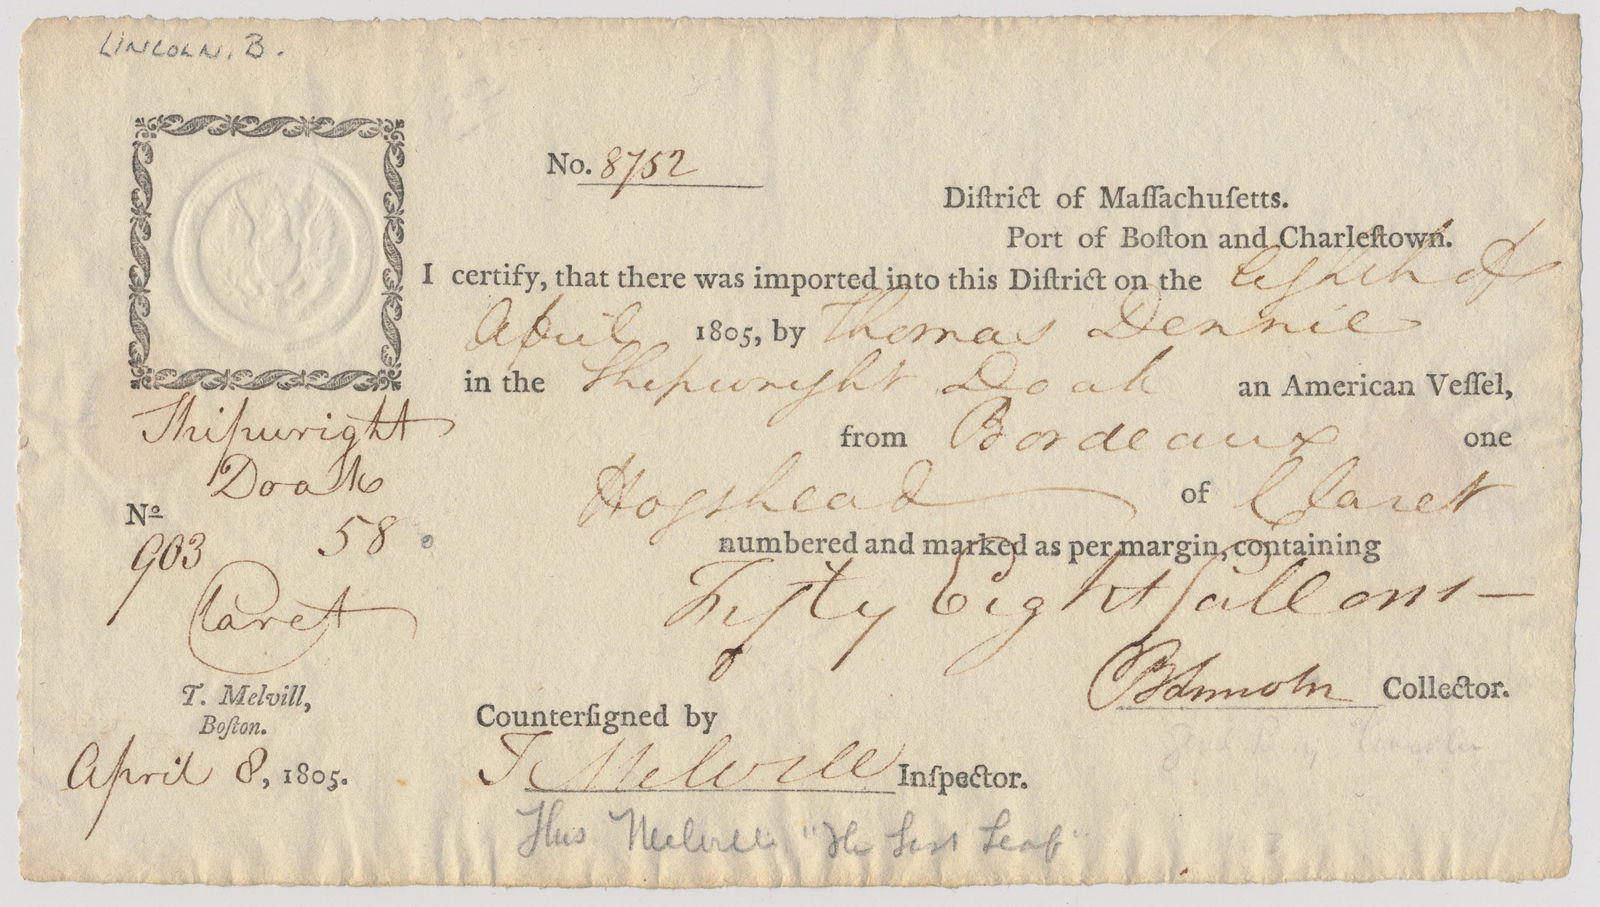 LINCOLN. B.
No. 8752
Diſtrict of Maſſachuſetts.
Port of Boſton and Charleſtown.
I certify, that there was imported into this Diſtrict on the Eighth of
April 1805, by Thomas Dennie
in the Shipwright Doak an American Veſſel,
from Bordeaux one
Hogshead of Claret
numbered and marked as per margin, containing
Fifty Eight Gallons—
BLincoln Collector.
Counterſigned by
T Melvill Inſpector.
Shipwright
Doak
No
903 58
Claret
T. Melvill,
Boſton.
April 8, 1805.
Thos Melvill "The Last Leaf"